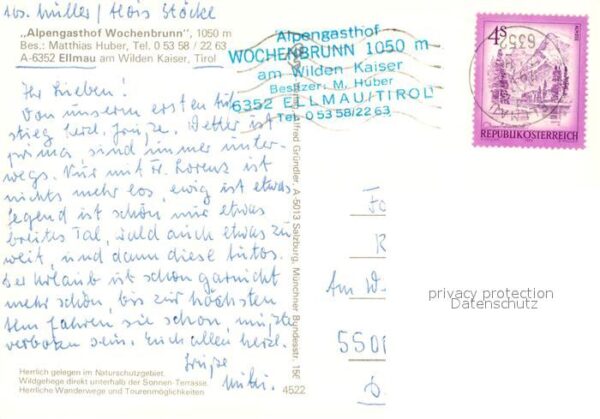 Jos. Müller / Alois Stöckl
„Alpengasthof Wochenbrunn", 1050 m
Bes.: Matthias Huber, Tel. 0 53 58 / 22 63
A-6352 Ellmau am Wilden Kaiser, Tirol
Alpengasthof
WOCHENBRUNN 1050 m
am Wilden Kaiser
Besitzer: M. Huber
6352 ELLMAU/TIROL
Tel. 0 53 58/22 63
4S
REPUBLIK ÖSTERREICH
6352
Ihr Lieben!
Von unserem ersten
stieg herzl. Grüße. Wetter ist
prima, sind immer unter-
wegs. Nur mit Fr. Lorenz ist
nichts mehr los, ewig ist etwas
Gegend ist schön nur etwas
breites Tal, wald auch etwas zu
weit, und dann diese Autos.
Der Urlaub ist schon garnicht
mehr schön, bis zur höchsten
fahren sie schon, müßte
verboten sein. Euch allen herzl.
Grüße
Alfred Gründler, A-5013 Salzburg, Münchner Bundesstr. 156
Am W-
5501
privacy protection
Datenschutz
Herrlich gelegen im Naturschutzgebiet.
Wildgehege direkt unterhalb der Sonnen-Terrasse.
Herrliche Wanderwege und Tourenmöglichkeiten
4522